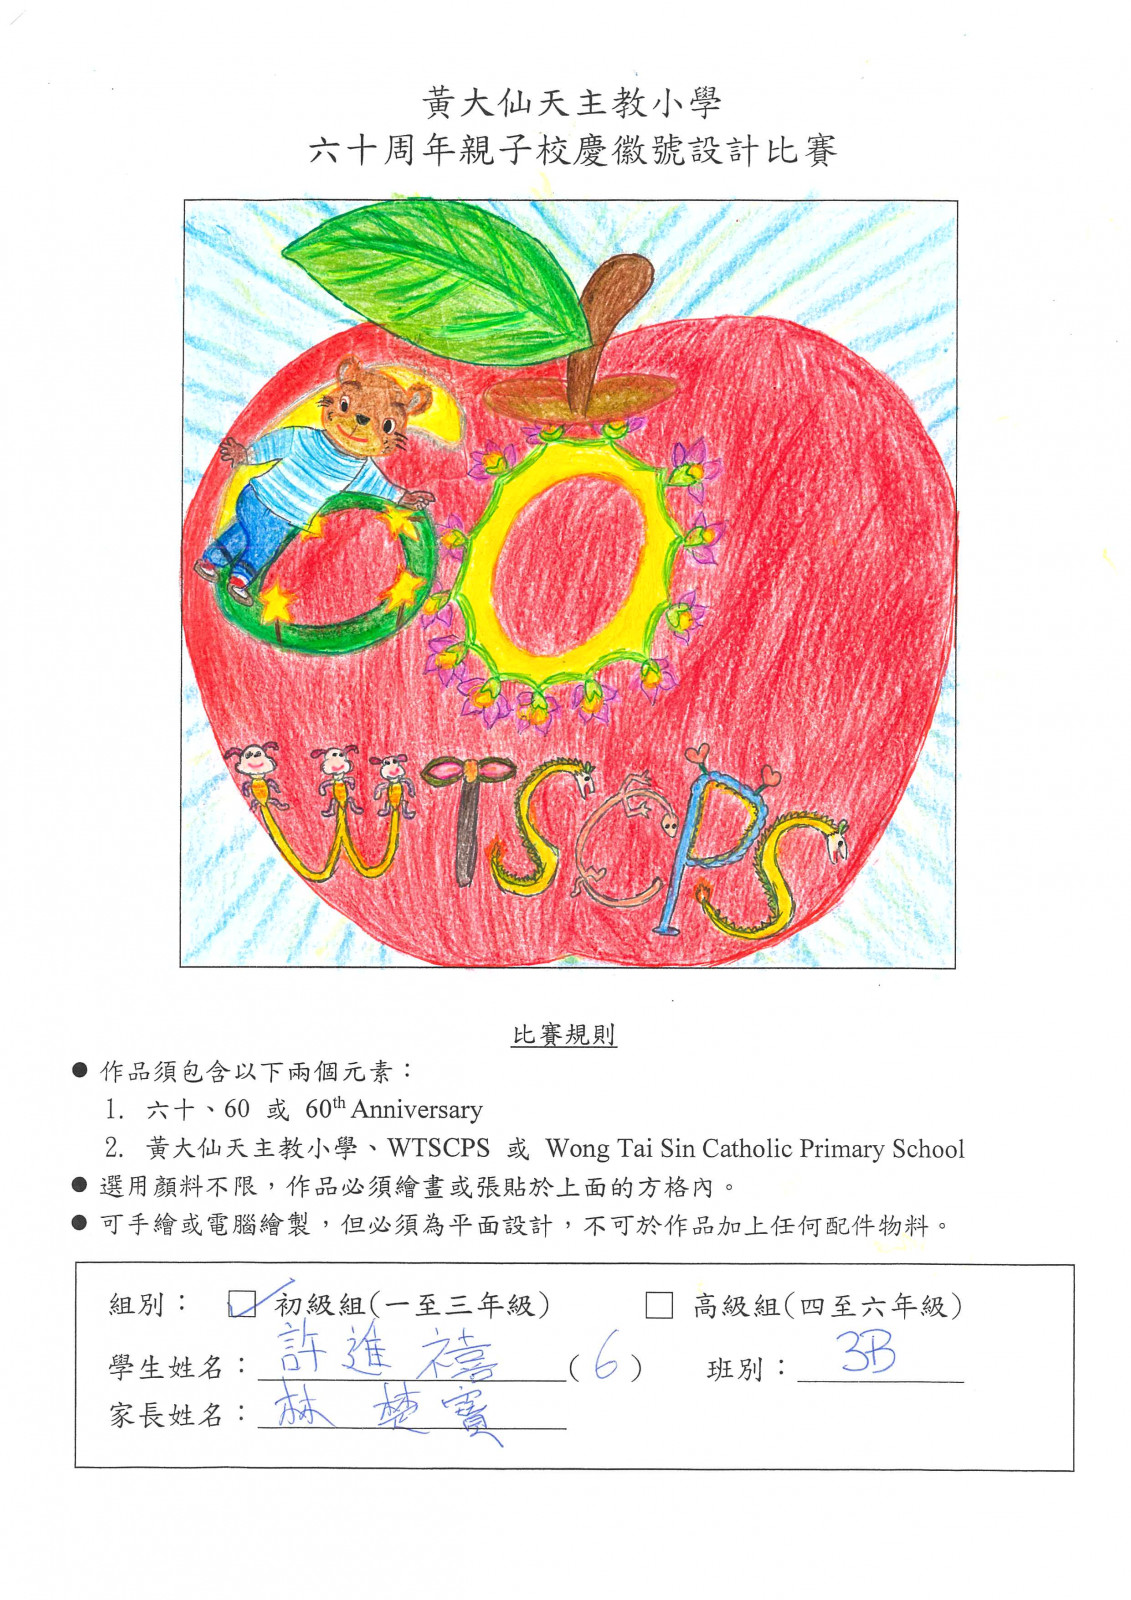 黃大仙天主教小學
六十周年親子校慶徽號設計比賽
60
WTSCPS
比賽規則
● 作品須包含以下兩個元素：
1. 六十、60 或 60th Anniversary
2. 黃大仙天主教小學、WTSCPS 或 Wong Tai Sin Catholic Primary School
● 選用顏料不限，作品必須繪畫或張貼於上面的方格內。
● 可手繪或電腦繪製，但必須為平面設計，不可於作品加上任何配件物料。
組別： ☑ 初級組(一至三年級) □ 高級組(四至六年級)
學生姓名：許進禧(6) 班別：3B
家長姓名：林楚寶